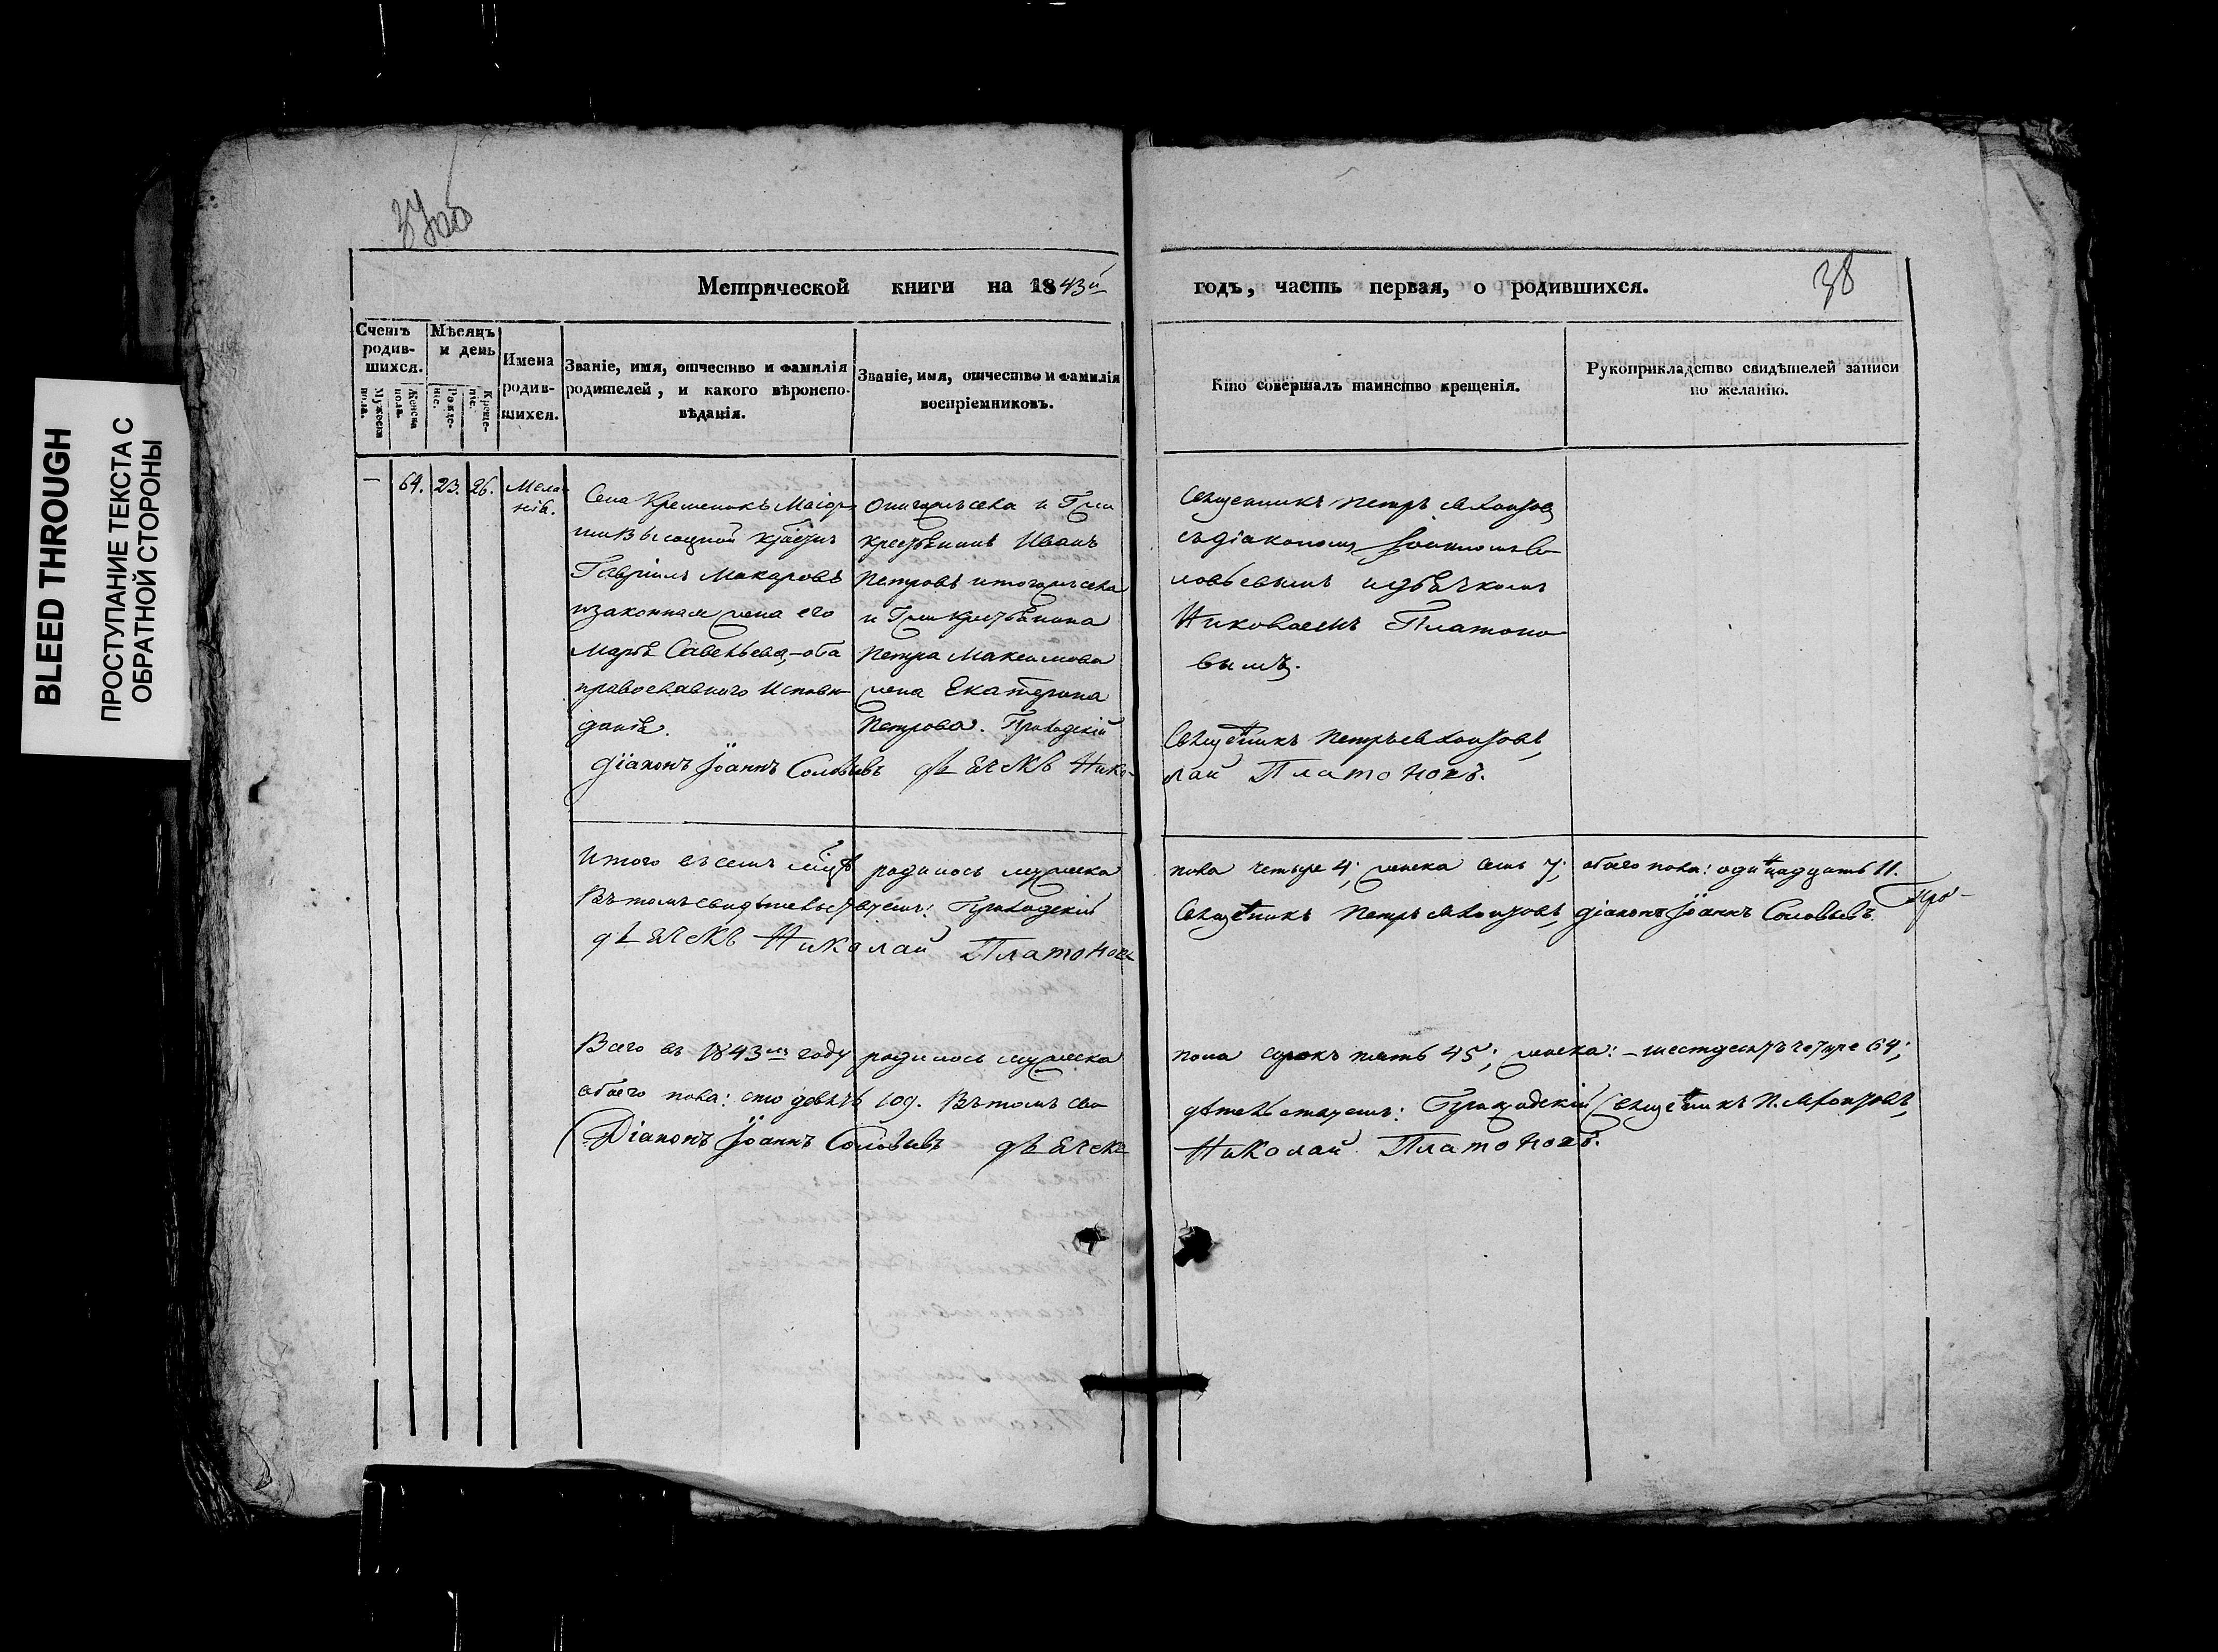 BLEED THROUGH
ПРОСТУПАНИЕ ТЕКСТА С
ОБРАТНОЙ СТОРОНЫ
37об
Метрической книги на 1843й
годъ, часть первая, о родившихся.
38
Счетъ родившихся.
Мужеска пола.
Женска пола.
Мѣсяцъ и день
Рождение.
Крещение.
Имена родившихся.
Званіе, имя, отчество и фамилія
родителей, и какого вѣроиспо-
вѣданія.
Званіе, имя, отчество и фамилія
воспріемниковъ.
Кто совершалъ таинство крещенія.
Рукоприкладство свидѣтелей записи
по желанію.
— 64. 23. 26. Мела-
нія.
Села Кременокъ Маіор
Гавріилъ Макаровъ
изаконная жена его
Марѳа Савельева, – оба
православнаго исповѣ-
данія.
крестьянинъ Иванъ
Петровъ итогожъ села
крестьянина
Петра Максимова
жена Екатерина
Петрова. Приходскій
Священникъ Петръ
съдіакономъ Іоанномъ Со-
ловьевымъ идьячкомъ
Николаемъ Платоно-
вымъ.
Священникъ Петръ
діаконъ Іоаннъ Соловьевъ дьячекъ Нико-
лай Платоновъ.
Итого въ семъ мцѣ родилось мужеска
пола четыре 4; женска семь 7; обаего пола: одинадцать 11.
Въ томъ свидѣтельствуемъ: Приходскій
Священникъ Петръ діаконъ Іоаннъ Соловьевъ.
дьячекъ Николай Платоновъ
Всего въ 1843мъ году родилось мужеска
пола сорокъ пять 45; женска: – шестдесятъ четыре 64;
обаего пола: сто девять 109. Въ томъ сви-
дѣтельствуемъ: Приходскій Священникъ П.
Діаконъ Іоаннъ Соловьевъ дьячекъ
Николай Платоновъ.